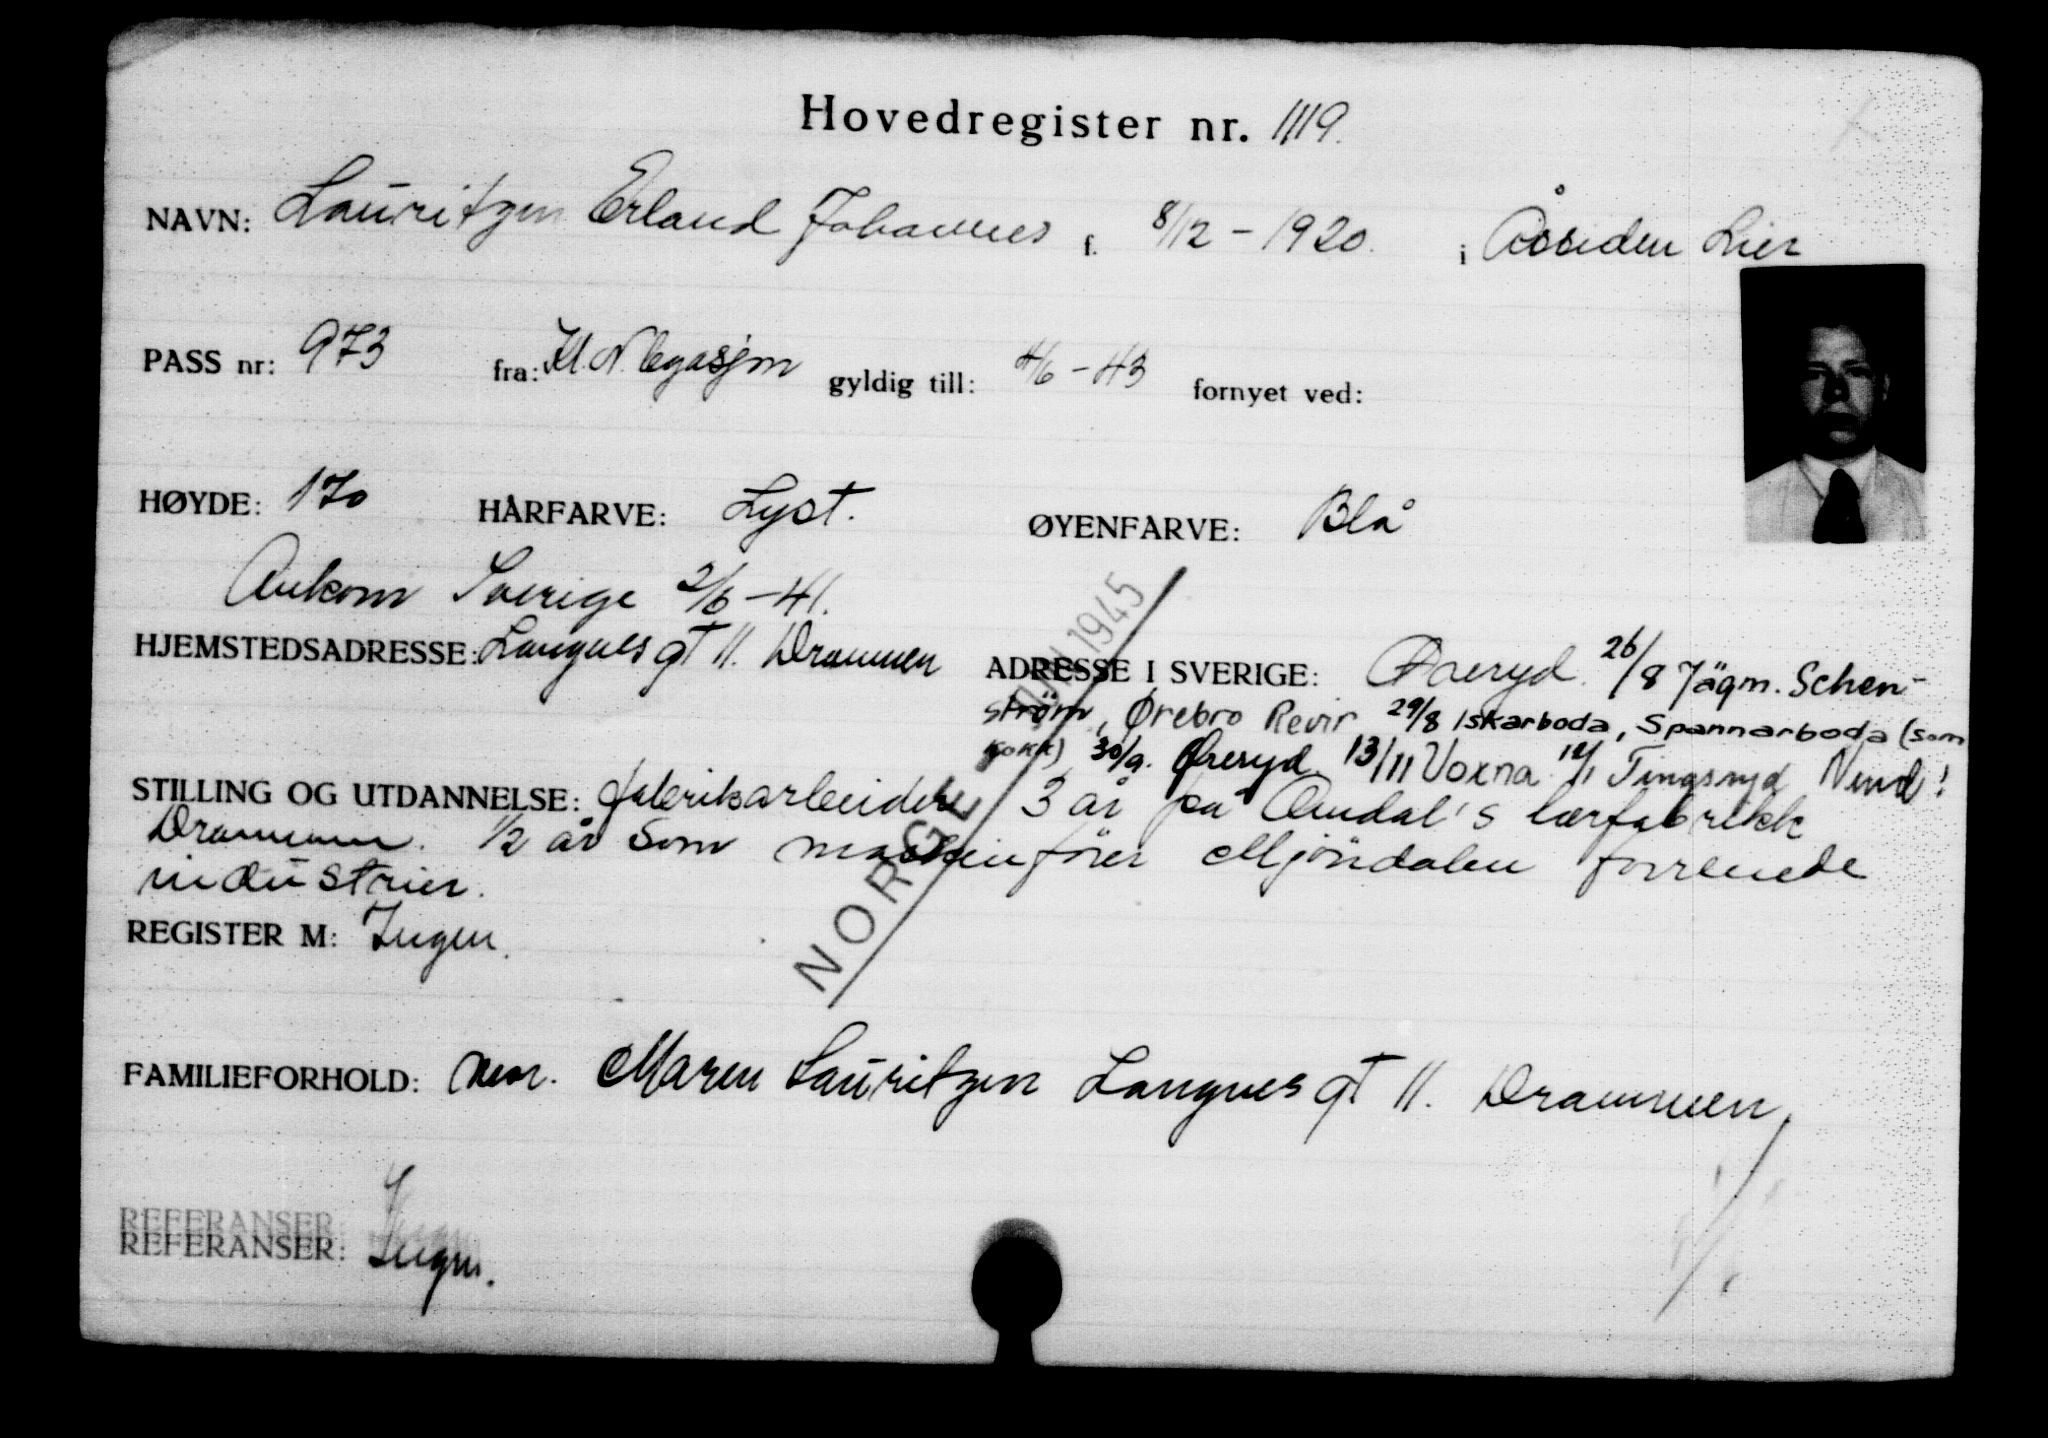 Hovedregister nr. 1119.
NAVN: Lauritzen Erland Johannes f. 8/12 - 1920. i Åssiden Lier
PASS nr: 973 fra: Kl. N. legasjon gyldig till: 4/6 - 43 fornyet ved:
HØYDE: 170 HÅRFARVE: Lyst. ØYENFARVE: Blå
Ankom Sverige 2/6 - 41.
HJEMSTEDSADRESSE: Langnes gt 11. Drammen ADRESSE I SVERIGE: Öreryd. 26/8 Jägm. Schen-
strøm, Ørebro Revir 29/8 Iskarboda, Spannarboda (som
kokk) 30/9. Øreryd 13/11 Voxna. Tingsryd
STILLING OG UTDANNELSE: fabrikarbeider 3 år på Amdal's lærfabrikk
Drammen. 1/2 år som maskinfører Mjöndalen forrenede
industrier.
NORGE JUNI 1945
REGISTER M: Ingen.
FAMILIEFORHOLD: mor. Maren Lauritzen Langnes gt 11. Drammen.
REFERANSER:
REFERANSER: Ingen.